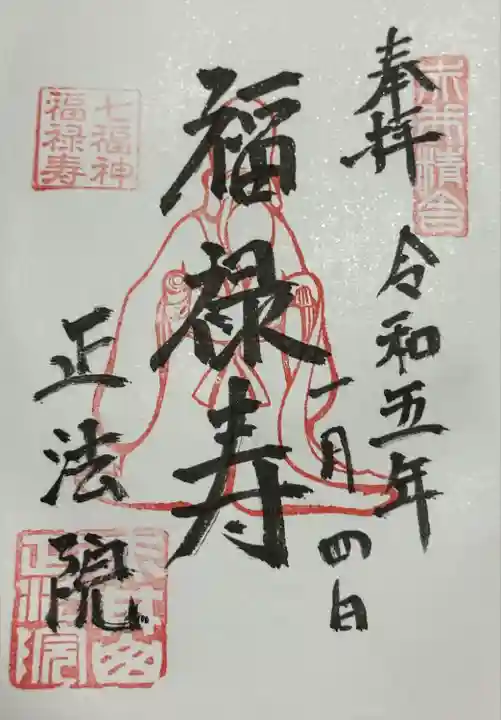 奉拝
令和五年
一月四日
福禄寿
七福神
福禄寿
正法院